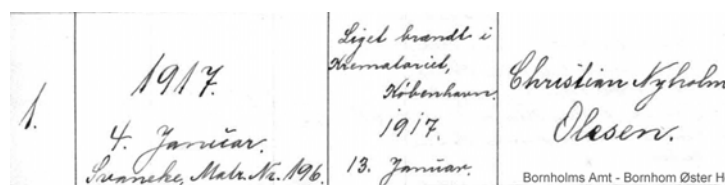 1.
1917.
4. Januar.
Svaneke, Matr. Nr. 196.
Liget brændt i
Krematoriet,
København.
1917.
13. Januar.
Christian Nyholm
Olesen.
Bornholms Amt - Bornhom Øster H